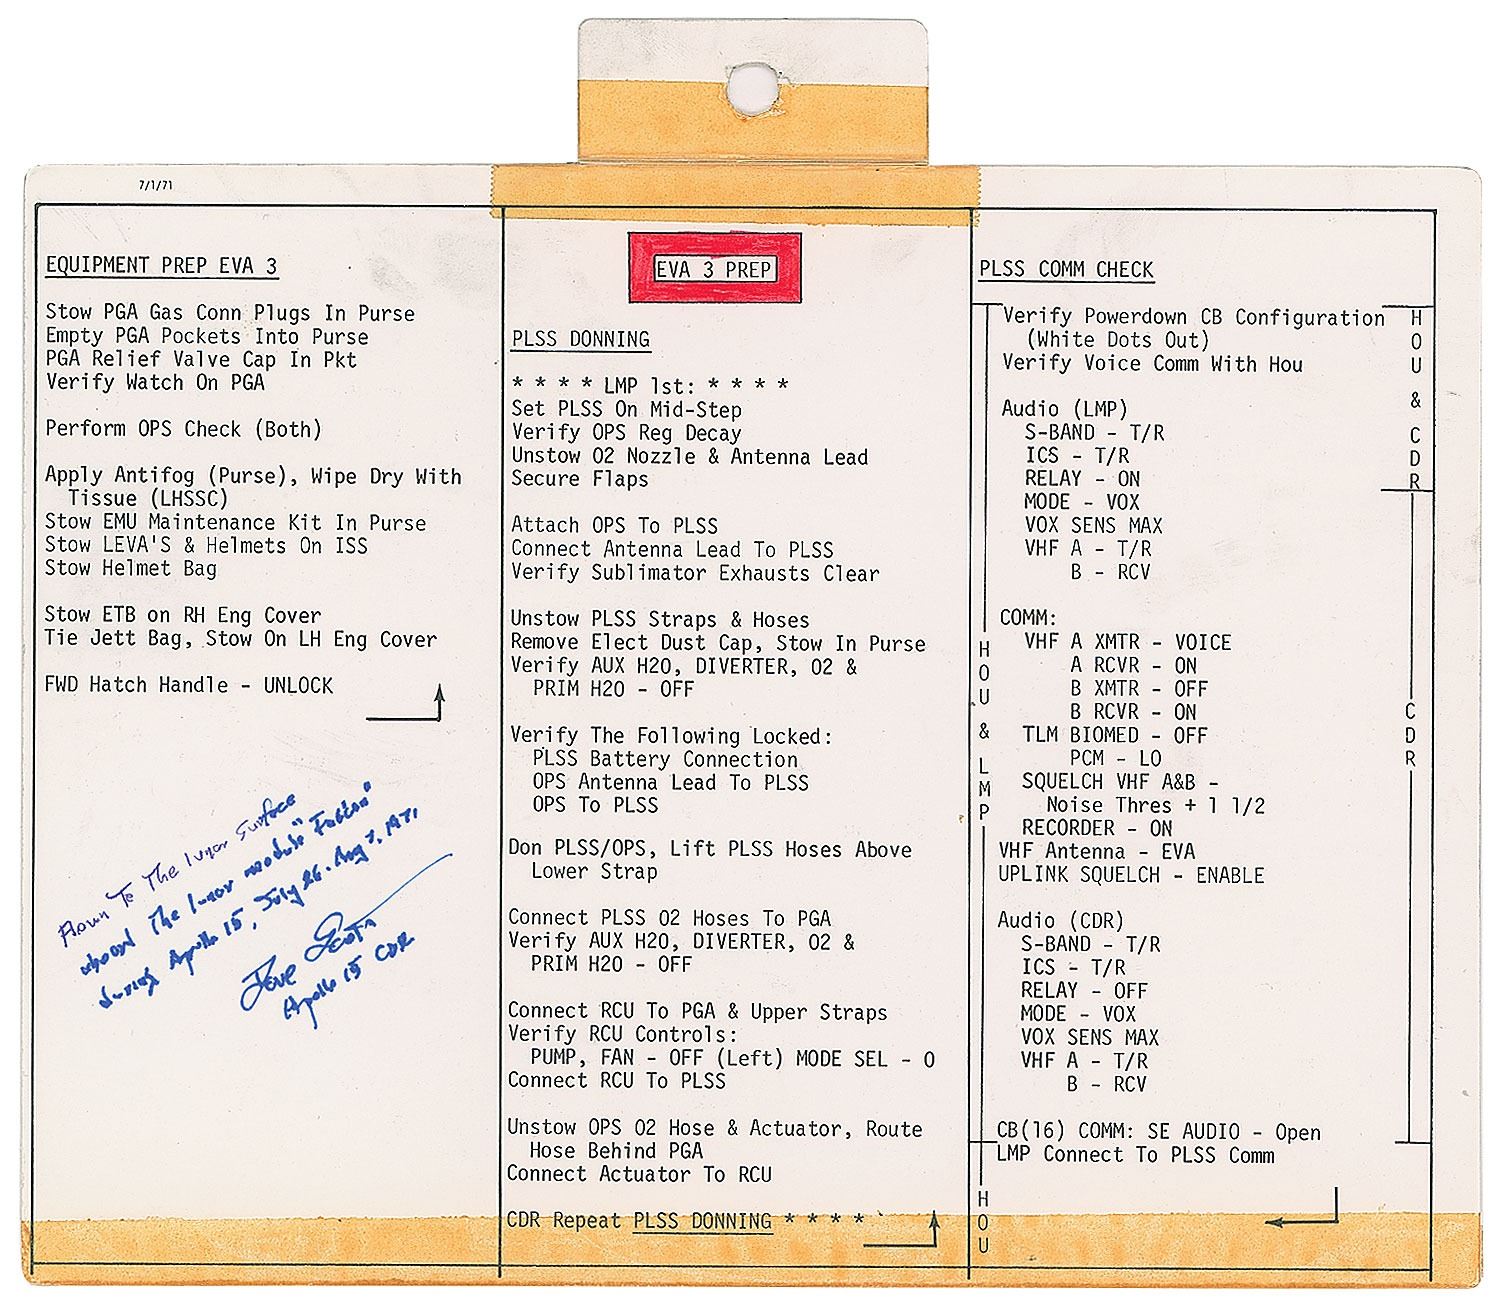 7/1/71
EQUIPMENT PREP EVA 3
Stow PGA Gas Conn Plugs In Purse
Empty PGA Pockets Into Purse
PGA Relief Valve Cap In Pkt
Verify Watch On PGA
Perform OPS Check (Both)
Apply Antifog (Purse), Wipe Dry With
Tissue (LHSSC)
Stow EMU Maintenance Kit In Purse
Stow LEVA'S & Helmets On ISS
Stow Helmet Bag
Stow ETB on RH Eng Cover
Tie Jett Bag, Stow On LH Eng Cover
FWD Hatch Handle - UNLOCK
Flown To The lunar surface
aboard The lunar module "Falcon"
during Apollo 15, July 26 - Aug 7, 1971
Dave Scott
Apollo 15 CDR
EVA 3 PREP
PLSS DONNING
* * * * LMP 1st: * * * *
Set PLSS On Mid-Step
Verify OPS Reg Decay
Unstow O2 Nozzle & Antenna Lead
Secure Flaps
Attach OPS To PLSS
Connect Antenna Lead To PLSS
Verify Sublimator Exhausts Clear
Unstow PLSS Straps & Hoses
Remove Elect Dust Cap, Stow In Purse
Verify AUX H2O, DIVERTER, O2 &
PRIM H2O - OFF
Verify The Following Locked:
PLSS Battery Connection
OPS Antenna Lead To PLSS
OPS To PLSS
Don PLSS/OPS, Lift PLSS Hoses Above
Lower Strap
Connect PLSS O2 Hoses To PGA
Verify AUX H2O, DIVERTER, O2 &
PRIM H2O - OFF
Connect RCU To PGA & Upper Straps
Verify RCU Controls:
PUMP, FAN - OFF (Left) MODE SEL - O
Connect RCU To PLSS
Unstow OPS O2 Hose & Actuator, Route
Hose Behind PGA
Connect Actuator To RCU
CDR Repeat PLSS DONNING * * * *
PLSS COMM CHECK
Verify Powerdown CB Configuration
(White Dots Out)
Verify Voice Comm With Hou
Audio (LMP)
S-BAND - T/R
ICS - T/R
RELAY - ON
MODE - VOX
VOX SENS MAX
VHF A - T/R
B - RCV
COMM:
VHF A XMTR - VOICE
A RCVR - ON
B XMTR - OFF
B RCVR - ON
TLM BIOMED - OFF
PCM - LO
SQUELCH VHF A&B -
Noise Thres + 1 1/2
RECORDER - ON
VHF Antenna - EVA
UPLINK SQUELCH - ENABLE
Audio (CDR)
S-BAND - T/R
ICS - T/R
RELAY - OFF
MODE - VOX
VOX SENS MAX
VHF A - T/R
B - RCV
CB(16) COMM: SE AUDIO - Open
LMP Connect To PLSS Comm
HOU & LMP
HOU
HOU & CDR
CDR